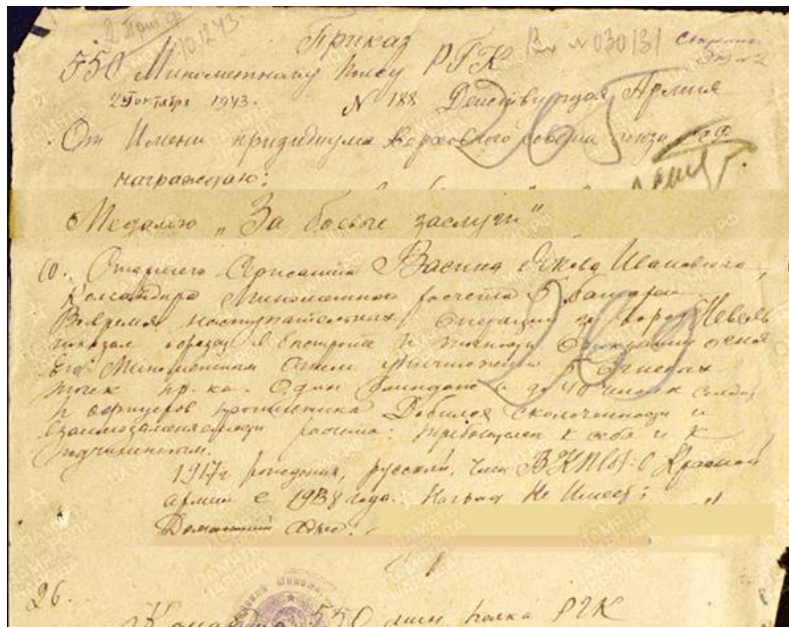 2 Приб ф
10.12.43
Приказ
Вх №030131 Секретно
550 Минометному Полку РГК Экз №2
25 октября 1943. №188 Действующая Армия
265
От Имени призидиума Верховного совета союза
награждаю:
Медалью „За боевые заслуги“
10. Старшего Сержанта Васина Якова Ивановича,
Командира Минометного расчета 5 батареи.
Вовремя наступательных Операций за город Невель
показал образцы в быстроте и точности огня
Его Минометным Огнем Уничтожено 5 Огневых
точек пр-ка. Один блиндаж и до 40 человек солдат
и офицеров противника Добился сколоченности и
взаимозаменяемости расчета: требователен к себе и к
подчиненным.
1917г рождения, русский, член ВКП(б). В Красной
армии с 1938 года. Наград Не Имеет;
Домашний Адрес:
26.
550 мин полка РГК